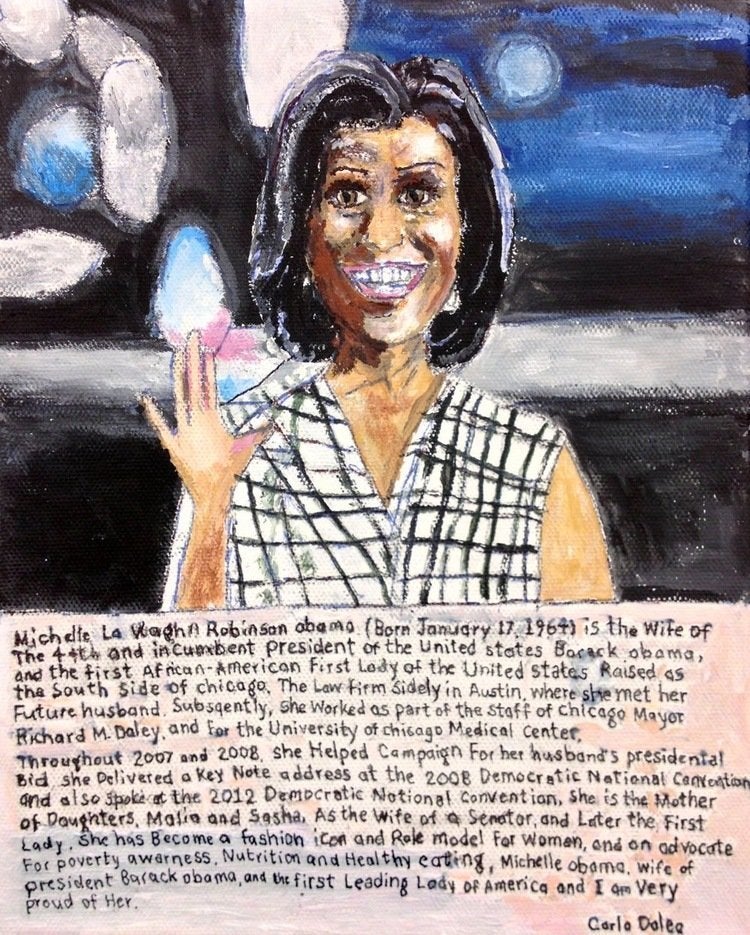 Michelle La Vaghn Robinson obama (Born January 17, 1964) is the Wife of
The 44th and incumbent president of the United states Barack obama,
and the first African-American First Lady of the United states Raised as
the South Side of chicago, The Law Firm Sidely in Austin, where she met her
Future husband. Subsqently, she Worked as part of the Staff of Chicago Mayor
Richard M. Daley, and For the University of chicago Medical Center,
Throughout 2007 and 2008, she Helped Campaign For her husband's presidential
Bid, she Delivered a Key Note address at the 2008 Democratic National Convention
and also spoke at the 2012 Democratic National Convention, She is the Mother
of Daughters, Malia and Sasha, As the Wife of a Senator, and Later the First
Lady, She has Become a fashion icon and Role model For Woman, and an advocate
For poverty awarness, Nutrition and Healthy eating, Michelle obama, wife of
president Barack obama, and the first Leading Lady of America and I am Very
proud of Her.
Carla Dalea